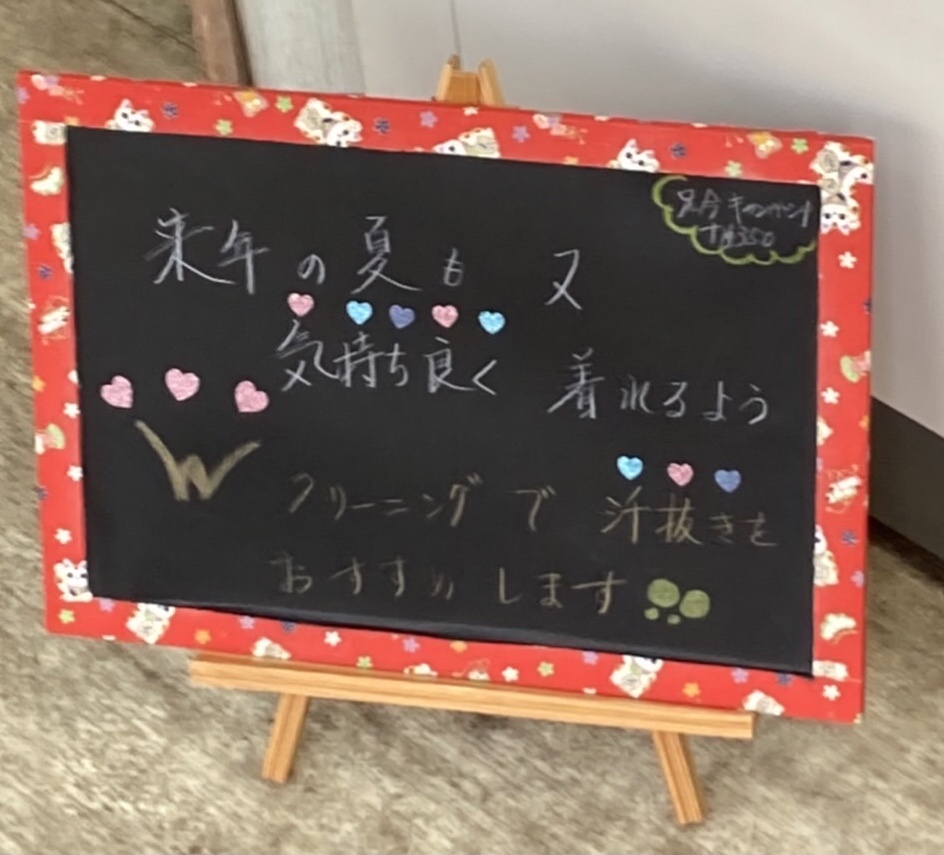 只今キャンペーン
来年の夏も 又
気持ち良く 着れるよう
W
クリーニングで 汗抜きを
おすすめします